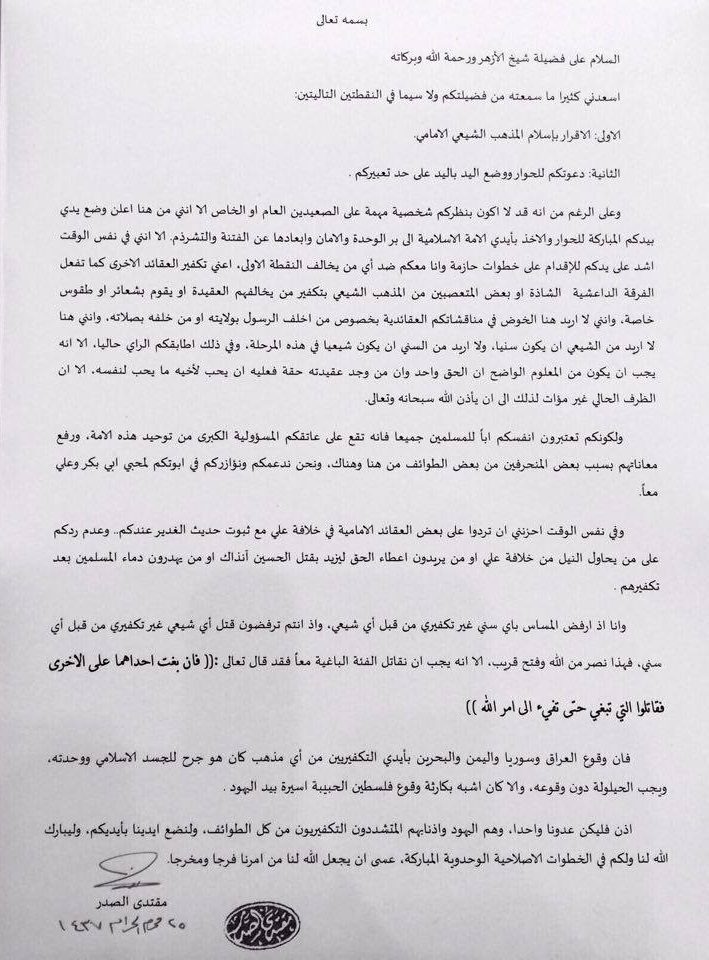 بسمه تعالى
السلام على فضيلة شيخ الأزهر ورحمة الله وبركاته
اسعدني كثيرا ما سمعته من فضيلتكم ولا سيما في النقطتين التاليتين:
الاولى: الاقرار بإسلام المذهب الشيعي الامامي.
الثانية: دعوتكم للحوار ووضع اليد باليد على حد تعبيركم .
وعلى الرغم من انه قد لا اكون بنظركم شخصية مهمة على الصعيدين العام او الخاص الا انني من هنا اعلن وضع يدي
بيدكم المباركة للحوار والاخذ بأيدي الامة الاسلامية الى بر الوحدة والامان وابعادها عن الفتنة والتشرذم. الا انني في نفس الوقت
اشد على يدكم للإقدام على خطوات حازمة وانا معكم ضد أي من يخالف النقطة الاولى، اعني تكفير العقائد الاخرى كما تفعل
الفرقة الداعشية الشاذة او بعض المتعصبين من المذهب الشيعي بتكفير من يخالفهم العقيدة او يقوم بشعائر او طقوس
خاصة، وانني لا اريد هنا الخوض في مناقشاتكم العقائدية بخصوص من اخلف الرسول بولايته او من خلفه بصلاته، وانني هنا
لا اريد من الشيعي ان يكون سنيا، ولا اريد من السني ان يكون شيعيا في هذه المرحلة، وفي ذلك اطابقكم الراي حاليا، الا انه
يجب ان يكون من المعلوم الواضح ان الحق واحد وان من وجد عقيدته حقة فعليه ان يحب لأخيه ما يحب لنفسه، الا ان
الظرف الحالي غير مؤات لذلك الى ان يأذن الله سبحانه وتعالى.
ولكونكم تعتبرون انفسكم اباً للمسلمين جميعا فانه تقع على عاتقكم المسؤولية الكبرى من توحيد هذه الامة، ورفع
معاناتهم بسبب بعض المنحرفين من بعض الطوائف من هنا وهناك، ونحن ندعمكم ونؤازركم في ابوتكم لمحبي ابي بكر وعلي
معاً.
وفي نفس الوقت احزنني ان تردوا على بعض العقائد الامامية في خلافة علي مع ثبوت حديث الغدير عندكم.. وعدم ردكم
على من يحاول النيل من خلافة علي او من يريدون اعطاء الحق ليزيد بقتل الحسين آنذاك او من يهدرون دماء المسلمين بعد
تكفيرهم .
وانا اذ ارفض المساس باي سني غير تكفيري من قبل أي شيعي، واذ انتم ترفضون قتل أي شيعي غير تكفيري من قبل أي
سني، فهذا نصر من الله وفتح قريب، الا انه يجب ان نقاتل الفئة الباغية معاً فقد قال تعالى :(( فان بغت احداهما على الاخرى
فقاتلوا التي تبغي حتى تفيء الى امر الله ))
فان وقوع العراق وسوريا واليمن والبحرين بأيدي التكفيريين من أي مذهب كان هو جرح للجسد الاسلامي ووحدته،
ويجب الحيلولة دون وقوعه، والا كان اشبه بكارثة وقوع فلسطين الحبيبة اسيرة بيد اليهود .
اذن فليكن عدونا واحدا، وهم اليهود واذنابهم المتشددون التكفيريون من كل الطوائف، ولنضع ايدينا بأيديكم، وليبارك
الله لنا ولكم في الخطوات الاصلاحية الوحدوية المباركة، عسى ان يجعل الله لنا من امرنا فرجا ومخرجا.
مقتدى الصدر
٢٥ محرم الحرام ١٤٣٧
مقتدى الصدر